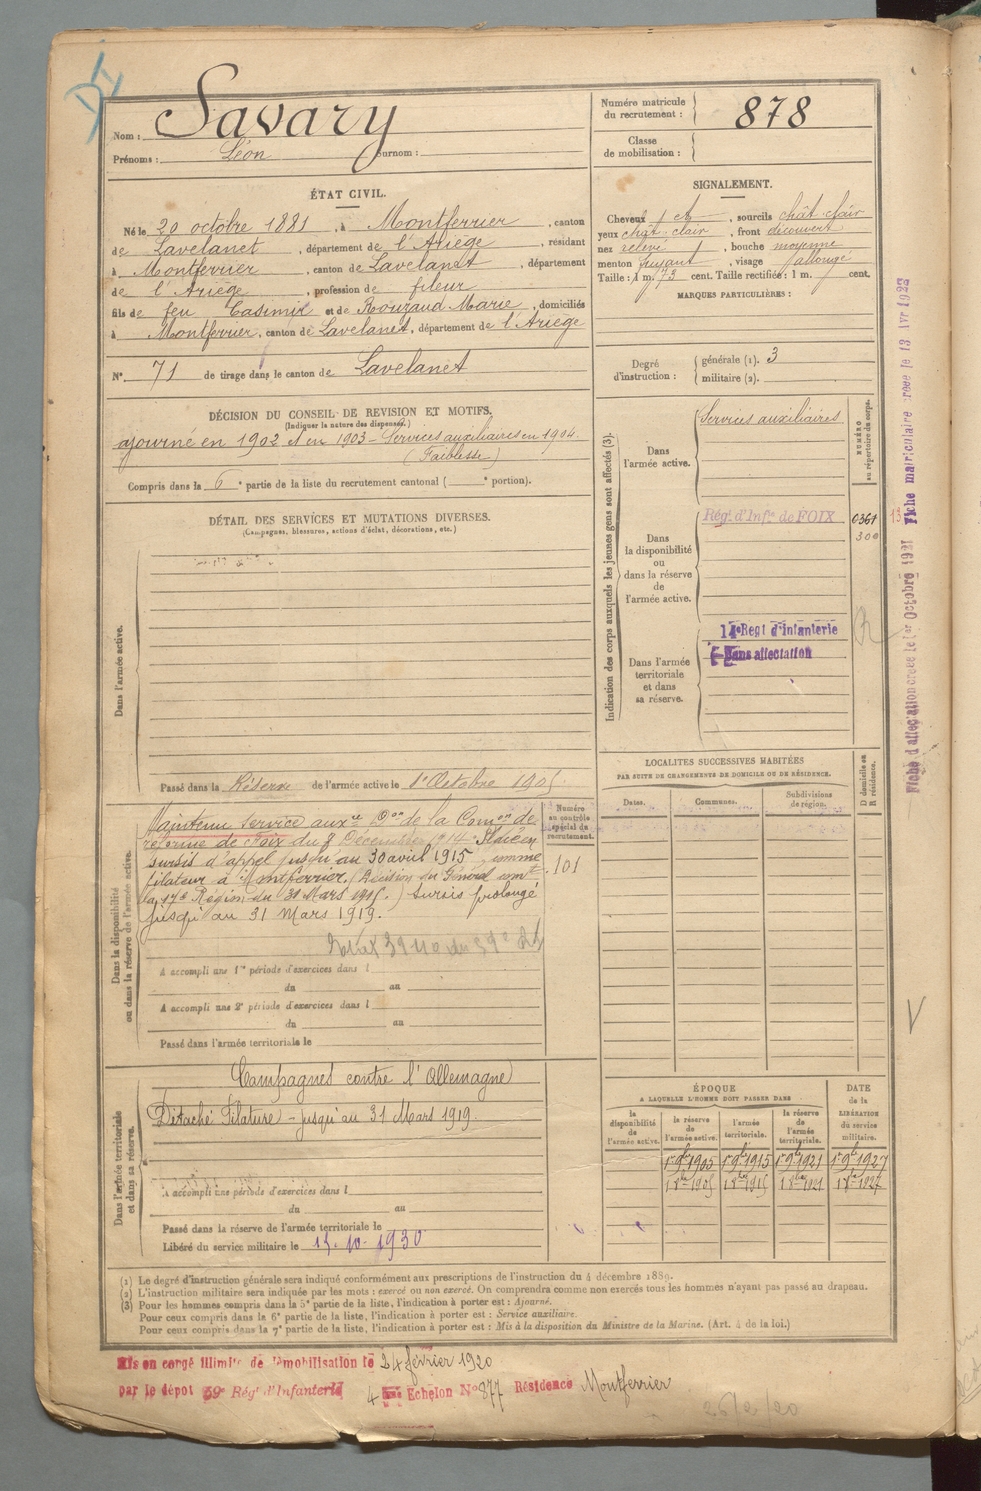 Nom : Savary
Prénoms : Léon surnom :
Numéro matricule du recrutement : 878
Classe de mobilisation :
ÉTAT CIVIL.
Né le 20 octobre 1881, à Montferrier, canton
de Lavelanet, département de l'Ariège, résidant
à Montferrier, canton de Lavelanet, département
de l'Ariège, profession de fileur
fils de feu Casimir et de Rouzaud Marie, domiciliés
à Montferrier, canton de Lavelanet, département de l'Ariège
N° 71 de tirage dans le canton de Lavelanet
SIGNALEMENT.
Cheveux ch, sourcils chât. clair
yeux chât. clair, front découvert
nez relevé, bouche moyenne
menton fuyant, visage allongé
Taille : 1 m. 73 cent. Taille rectifiée : 1 m. cent.
MARQUES PARTICULIÈRES :
Degré d'instruction : générale (1). 3
militaire (2).
DÉCISION DU CONSEIL DE REVISION ET MOTIFS.
(Indiquer la nature des dispenses.)
ajourné en 1902 et en 1903 - Services auxiliaires en 1904.
(Faiblesse)
Compris dans la 6e partie de la liste du recrutement cantonal ( e portion).
DÉTAIL DES SERVICES ET MUTATIONS DIVERSES.
(Campagnes, blessures, actions d'éclat, décorations, etc.)
Dans l'armée active.
Passé dans la Réserve de l'armée active le 1er Octobre 1905.
Indication des corps auxquels les jeunes gens sont affectés (3).
NUMÉRO au répertoire du corps.
Dans l'armée active.
Services auxiliaires
Dans la disponibilité ou dans la réserve de l'armée active.
Régt d'Infie de FOIX
0361
300
Dans l'armée territoriale et dans sa réserve.
14e Regt d'Infanterie
Sans affectation
LOCALITÉS SUCCESSIVES HABITÉES
PAR SUITE DE CHANGEMENTS DE DOMICILE OU DE RÉSIDENCE.
Dates.
Communes.
Subdivisions de région.
D domicile ou R résidence.
Dans la disponibilité ou dans la réserve de l'armée active.
Numéro au contrôle spécial du recrutement.
101
Maintenu service auxre Don de la Comon de
réforme de Foix du 8 Décembre 1914. Placé en
sursis d'appel jusqu'au 30 avril 1915, comme
filateur à Montferrier. (Décision du Général comt
la 17e Région du 31 Mars 1915.) Sursis prolongé
jusqu'au 31 Mars 1919.
A accompli une 1re période d'exercices dans l
du au
A accompli une 2e période d'exercices dans l
du au
Passé dans l'armée territoriale le
Dans l'armée territoriale et dans sa réserve.
Campagnes contre l'Allemagne
Détaché Filature - jusqu'au 31 Mars 1919.
A accompli une période d'exercices dans l
du au
Passé dans la réserve de l'armée territoriale le
Libéré du service militaire le 15-10-1930
ÉPOQUE
A LAQUELLE L'HOMME DOIT PASSER DANS
la disponibilité de l'armée active.
la réserve de l'armée active.
l'armée territoriale.
la réserve de l'armée territoriale.
DATE de la LIBÉRATION du service militaire.
1er 9bre 1905 1er 9bre 1915 1er 9bre 1921 1er 9bre 1927
1 8bre 1905 1 8bre 1915 1 8bre 1921 1 8bre 1927
(1) Le degré d'instruction générale sera indiqué conformément aux prescriptions de l'instruction du 4 décembre 1889.
(2) L'instruction militaire sera indiquée par les mots : exercé ou non exercé. On comprendra comme non exercés tous les hommes n'ayant pas passé au drapeau.
(3) Pour les hommes compris dans la 5e partie de la liste, l'indication à porter est : Ajourné.
Pour ceux compris dans la 6e partie de la liste, l'indication à porter est : Service auxiliaire.
Pour ceux compris dans la 7e partie de la liste, l'indication à porter est : Mis à la disposition du Ministre de la Marine. (Art. 4 de la loi.)
Mis en congé illimité de démobilisation le 24 février 1920
par le dépôt 59e Régt d'Infanterie 4 ème Echelon N° 877 Résidence Montferrier
26/2/20
Fiche d'affectation créée le 1er Octobre 1921
Fiche matriculaire créée le 13 Avr 1922